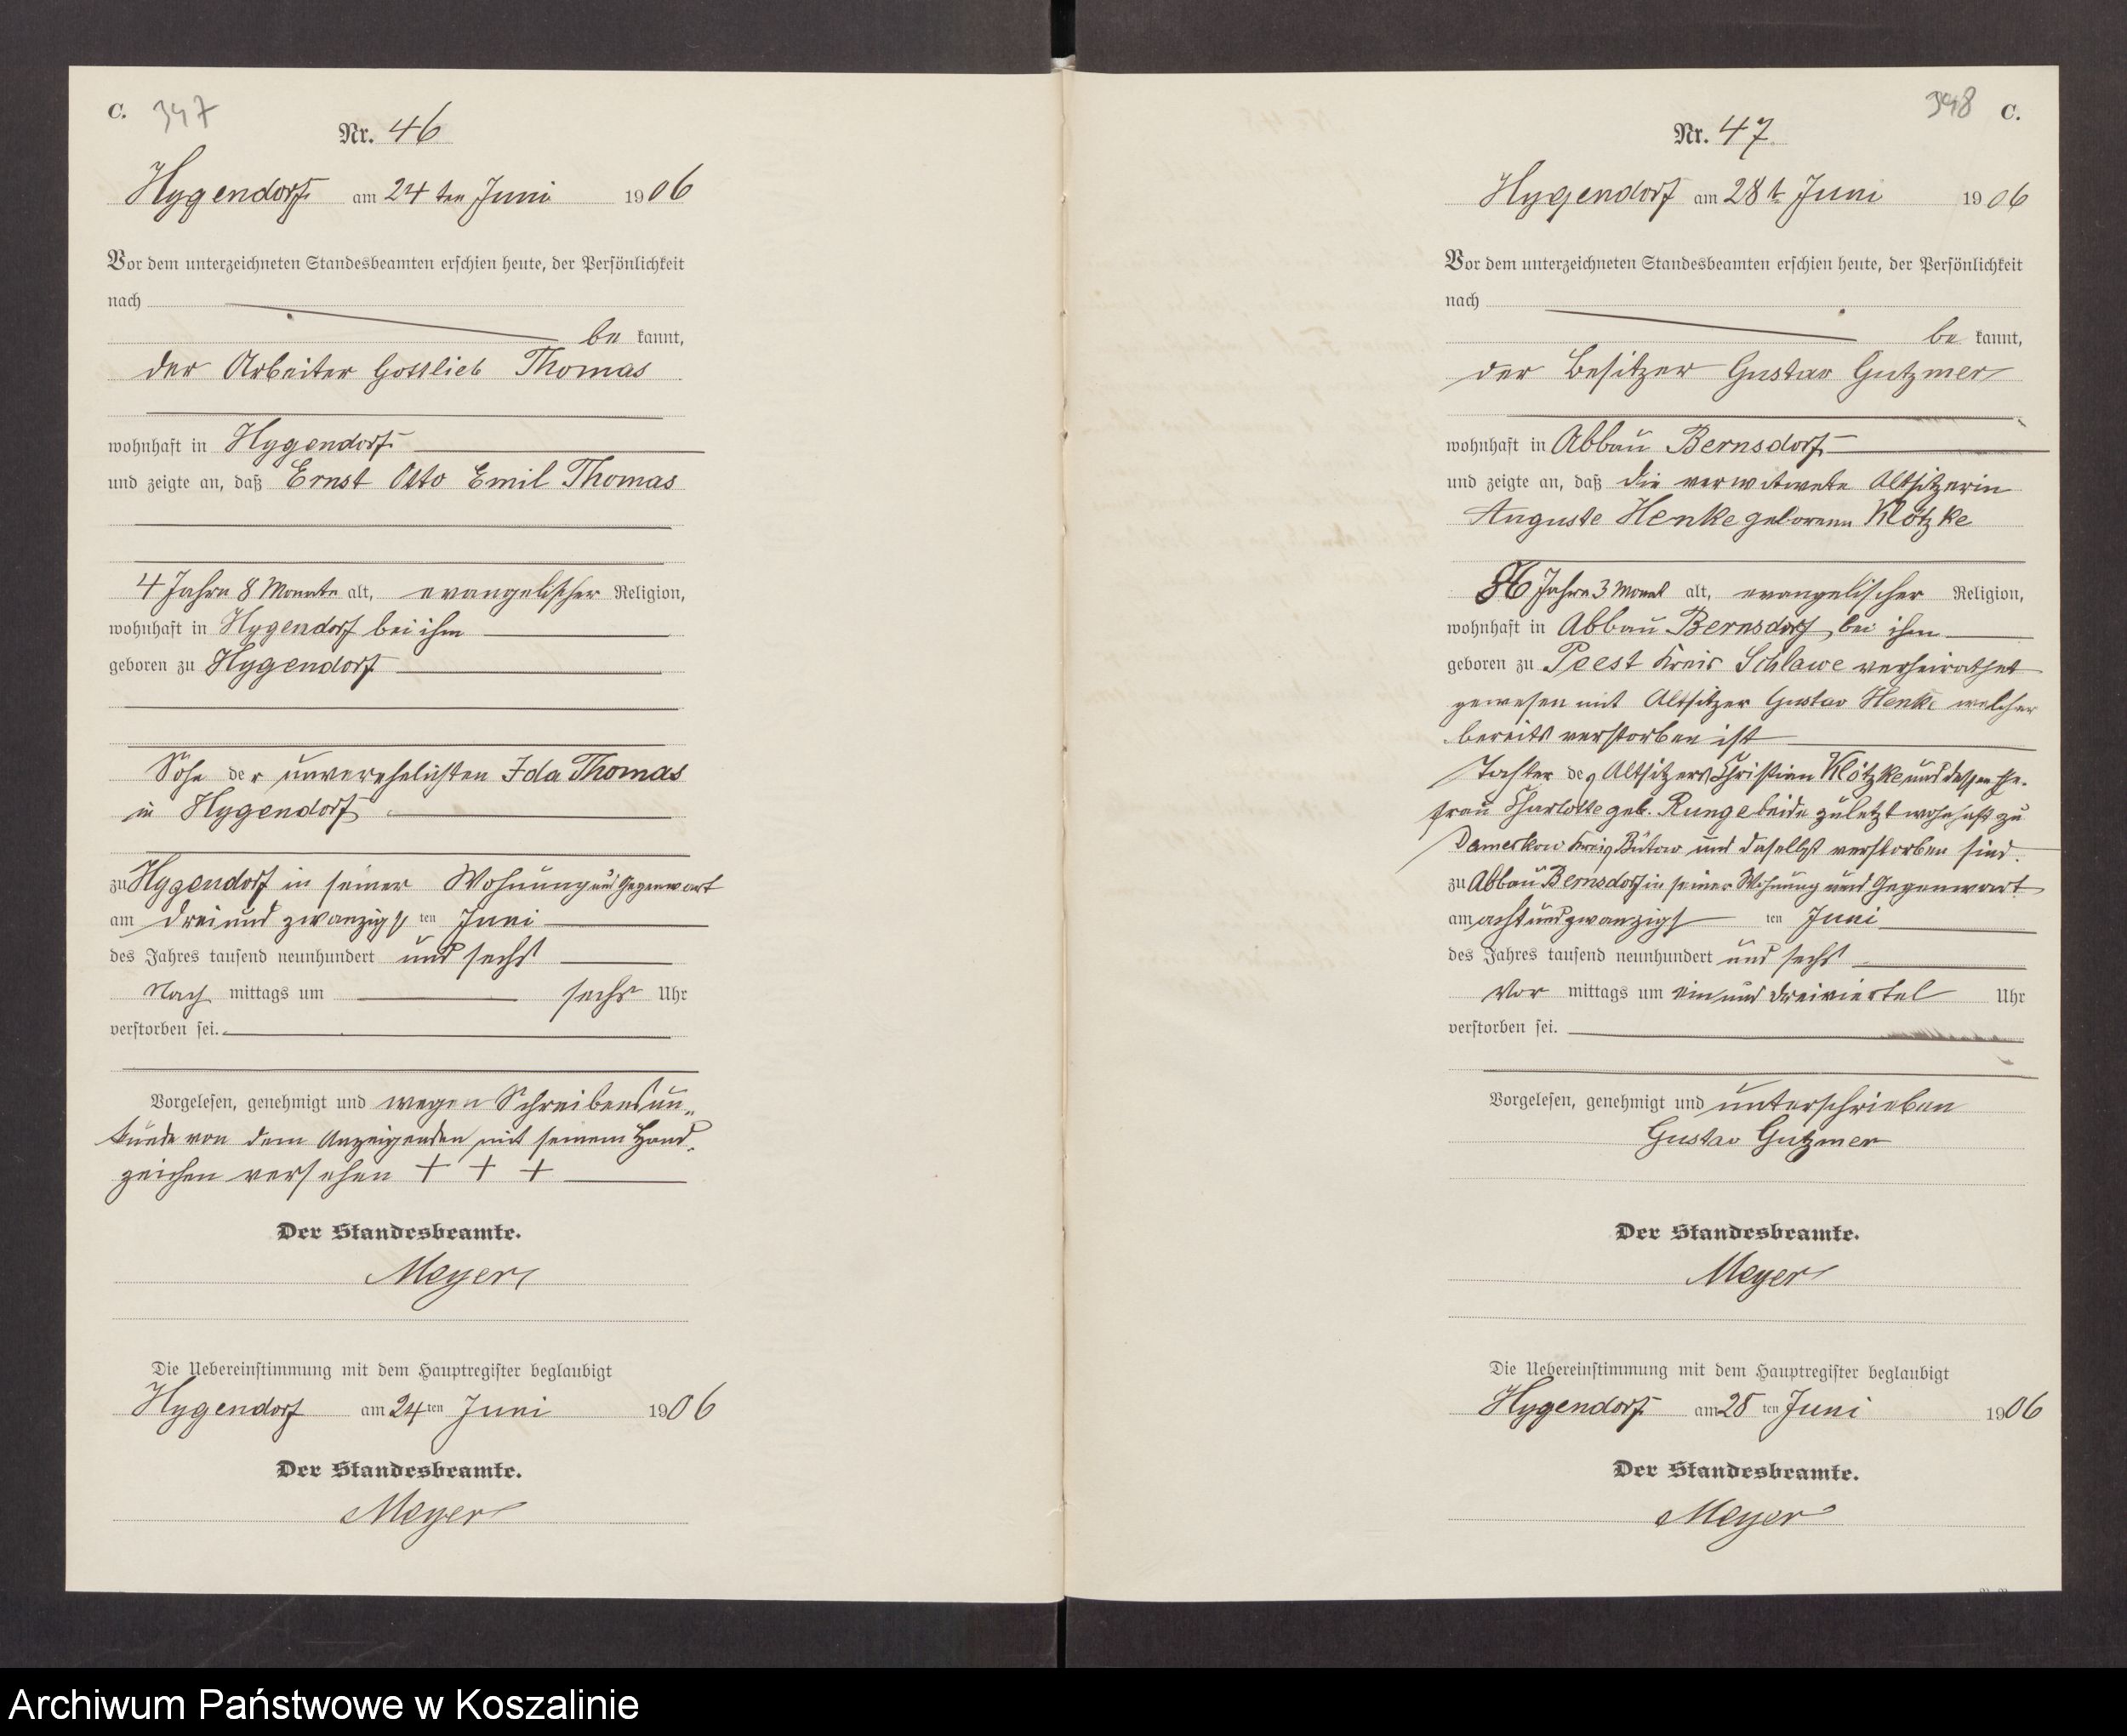 C. 347
Nr. 46
Hygendorf am 24ten Juni 1906
Vor dem unterzeichneten Standesbeamten erschien heute, der Persönlichkeit
nach
be kannt,
der Arbeiter Gottlieb Thomas
wohnhaft in Hygendorf
und zeigte an, daß Ernst Otto Emil Thomas
4 Jahre 8 Monate alt, evangelischer Religion,
wohnhaft in Hygendorf bei ihm
geboren zu Hygendorf
Sohn der unverehelichten Ida Thomas
in Hygendorf
zu Hygendorf in seiner Wohnung und Gegenwart
am dreiundzwanzigsten Juni
des Jahres tausend neunhundert und sechs
Nach mittags um sechs Uhr
verstorben sei.
Vorgelesen, genehmigt und wegen Schreibensun-
kunde von dem Anzeigenden mit seinem Hand-
zeichen versehen + + +
Der Standesbeamte.
Meyer
Die Uebereinstimmung mit dem Hauptregister beglaubigt
Hygendorf am 24ten Juni 1906
Der Standesbeamte.
Meyer
398 C.
Nr. 47
Hygendorf am 28t Juni 1906
Vor dem unterzeichneten Standesbeamten erschien heute, der Persönlichkeit
nach
be kannt,
der Besitzer Gustav Gutzmer
wohnhaft in Abbau Bernsdorf
und zeigte an, daß die verwitwete Altsitzerin
Auguste Henke geborene Klötzke
Jahre 3 Monat alt, evangelischer Religion,
wohnhaft in Abbau Bernsdorf, bei ihm
geboren zu Peest Kreis Schlawe verheirathet
gewesen mit Altsitzer Gustav Henke welcher
bereits verstorben ist
Tochter des Altsitzers Christian Klötzke und dessen Ehe-
frau Charlotte geb. Runge beide zuletzt wohnhaft zu
Damerkow Kreis Bütow und daselbst verstorben sind.
zu Abbau Bernsdorf in seiner Wohnung und Gegenwart
am achtundzwanzigsten Juni
des Jahres tausend neunhundert und sechs
Vor mittags um ein und dreiviertel Uhr
verstorben sei.
Vorgelesen, genehmigt und unterschrieben
Gustav Gutzmer
Der Standesbeamte.
Meyer
Die Uebereinstimmung mit dem Hauptregister beglaubigt
Hygendorf am 28ten Juni 1906
Der Standesbeamte.
Meyer
Archiwum Państwowe w Koszalinie